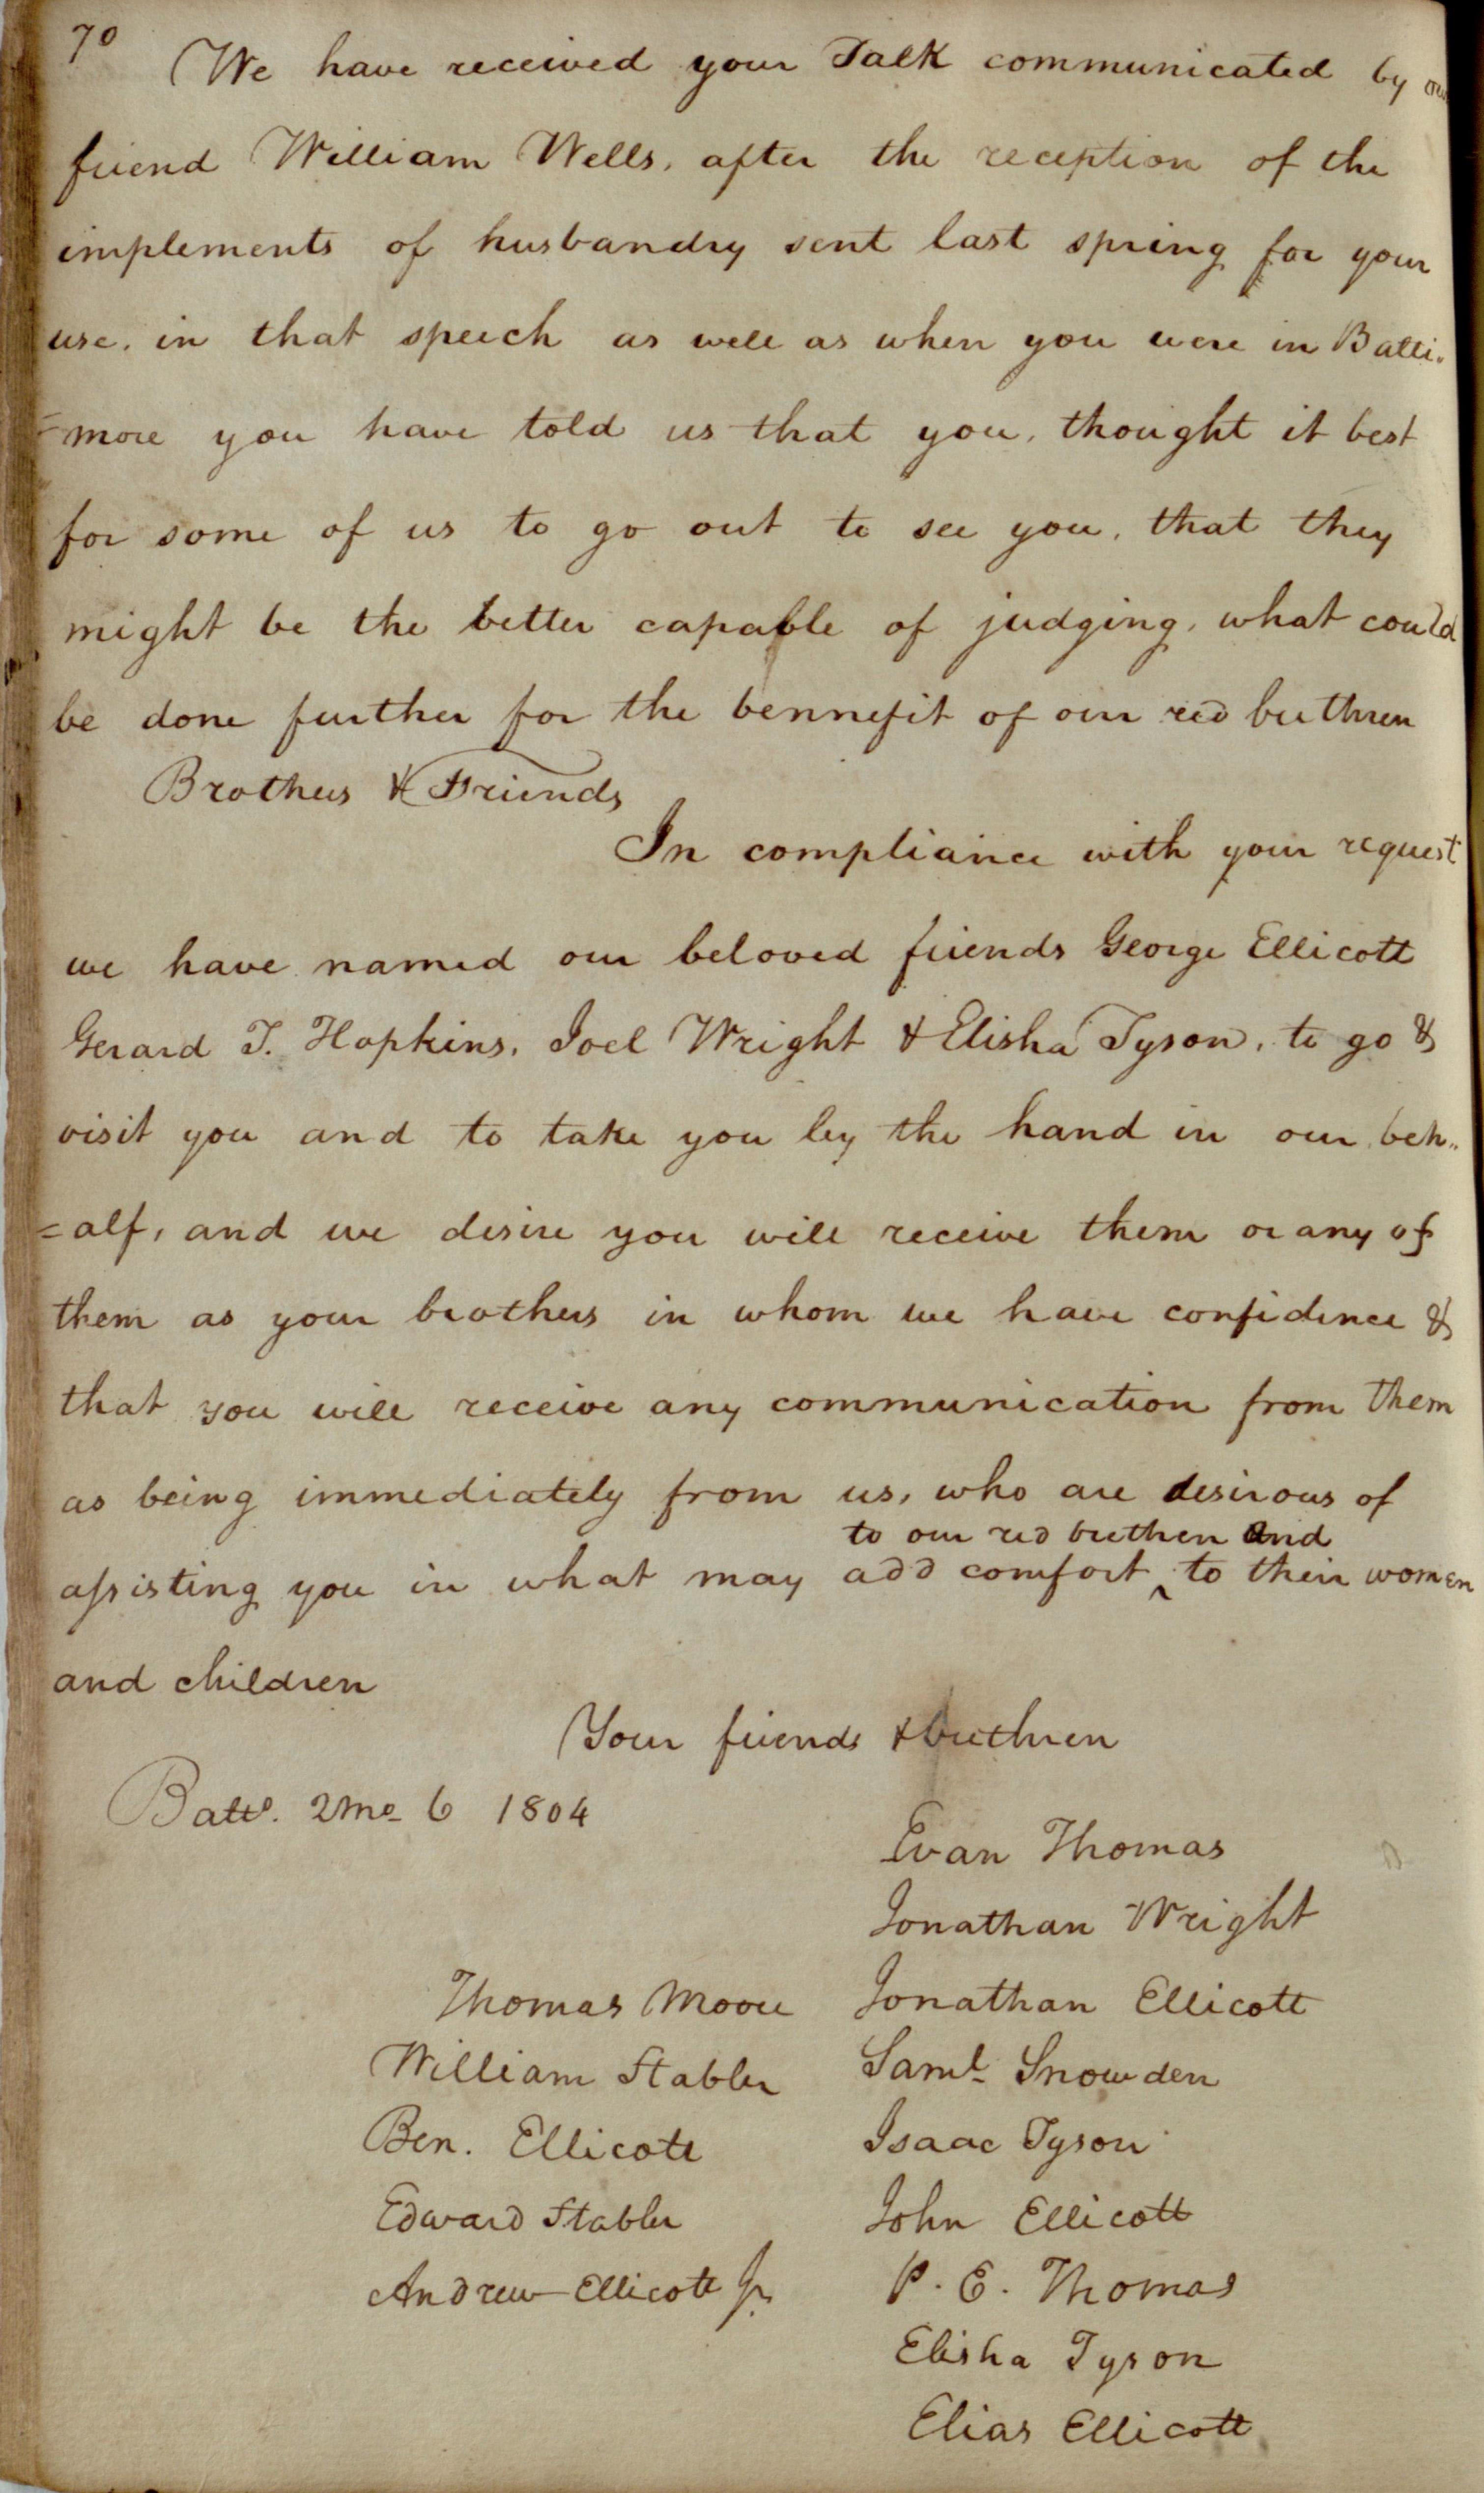 70
We have received your Talk communicated by our
friend William Wells, after the reception of the
implements of husbandry sent last spring for your
use, in that speech as well as when you were in Balti-
=more you have told us that you, thought it best
for some of us to go out to see you, that they
might be the better capable of judging, what could
be done further for the bennefit of our red brethren
Brothers & Friends
In compliance with your request
we have named our beloved friends George Ellicott
Gerard T. Hopkins, Joel Wright & Elisha Tyson, to go &
visit you and to take you by the hand in our beh-
=alf, and we desire you will receive them or any of
them as your brothers in whom we have confidence &
that you will receive any communication from them
as being immediately from us, who are desirous of
to our red brethren and
assisting you in what may add comfort ^ to their women
and children
Your friends & brethren
Balto. 2mo 6 1804
Evan Thomas
Jonathan Wright
Thomas Moore Jonathan Ellicott
William Stabler Saml Snowden
Ben. Ellicott Isaac Tyson
Edward Stabler John Ellicott
Andrew Ellicott Jr. P. E. Thomas
Elisha Tyson
Elias Ellicott